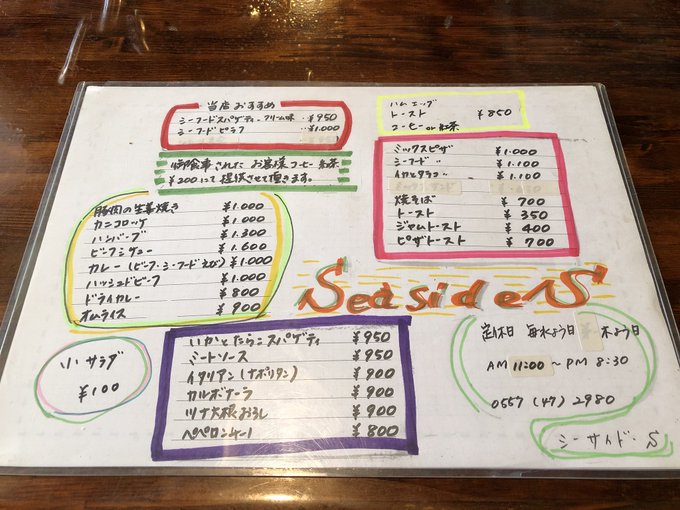 当店おすすめ
シーフードスパゲティークリーム味 ‥ ¥950
シーフードピラフ ¥1.000
御食事された お客様 コーヒー 紅茶
¥200にて 提供させて頂きます。
ハムエッグ
トースト ¥850
コーヒー or 紅茶
ミックスピザ ¥1.000
シーフード 〃 ¥1.100
イカとタラコ 〃 ¥1.100
焼そば ¥700
トースト ¥350
ジャムトースト ¥400
ピザトースト ¥700
豚肉の生姜焼き ¥1.000
カニコロッケ ¥1.000
ハンバーグ ¥1.300
ビーフシチュー ¥1.600
カレー(ビーフ・シーフードえび) ¥1.000
ハッシュドビーフ ¥1.000
ドライカレー ¥800
オムライス ¥900
Seaside S
小 サラダ
¥100
いかとたらこスパゲティ ¥950
ミートソース ¥950
イタリアン(ナポリタン) ¥900
カルボナーラ ¥900
ツナ大根おろし ¥900
ペペロンチーノ ¥800
定休日 毎水よう日 木よう日
AM 11:00 ~ PM 8:30
0557 (47) 2980
シーサイド・S